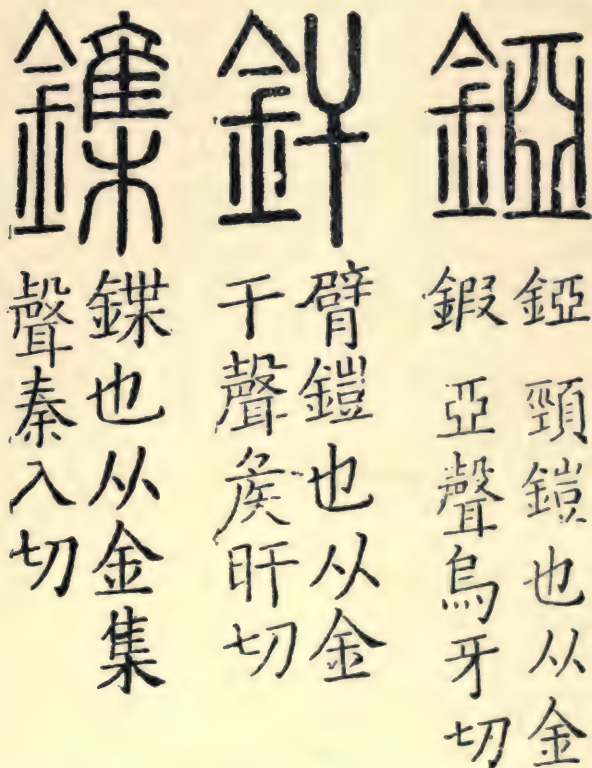 錏
錏鍜
頸鎧也从金
亞聲烏牙切
釬
臂鎧也从金
干聲矦旰切
鏶
鍱也从金集
聲秦入切